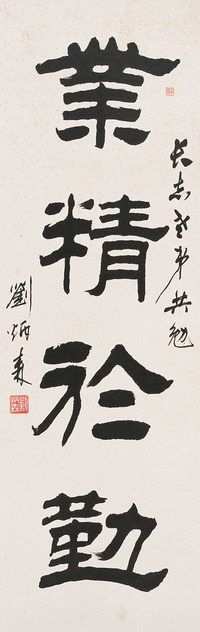 業精於勤
长志老弟共勉
劉炳森